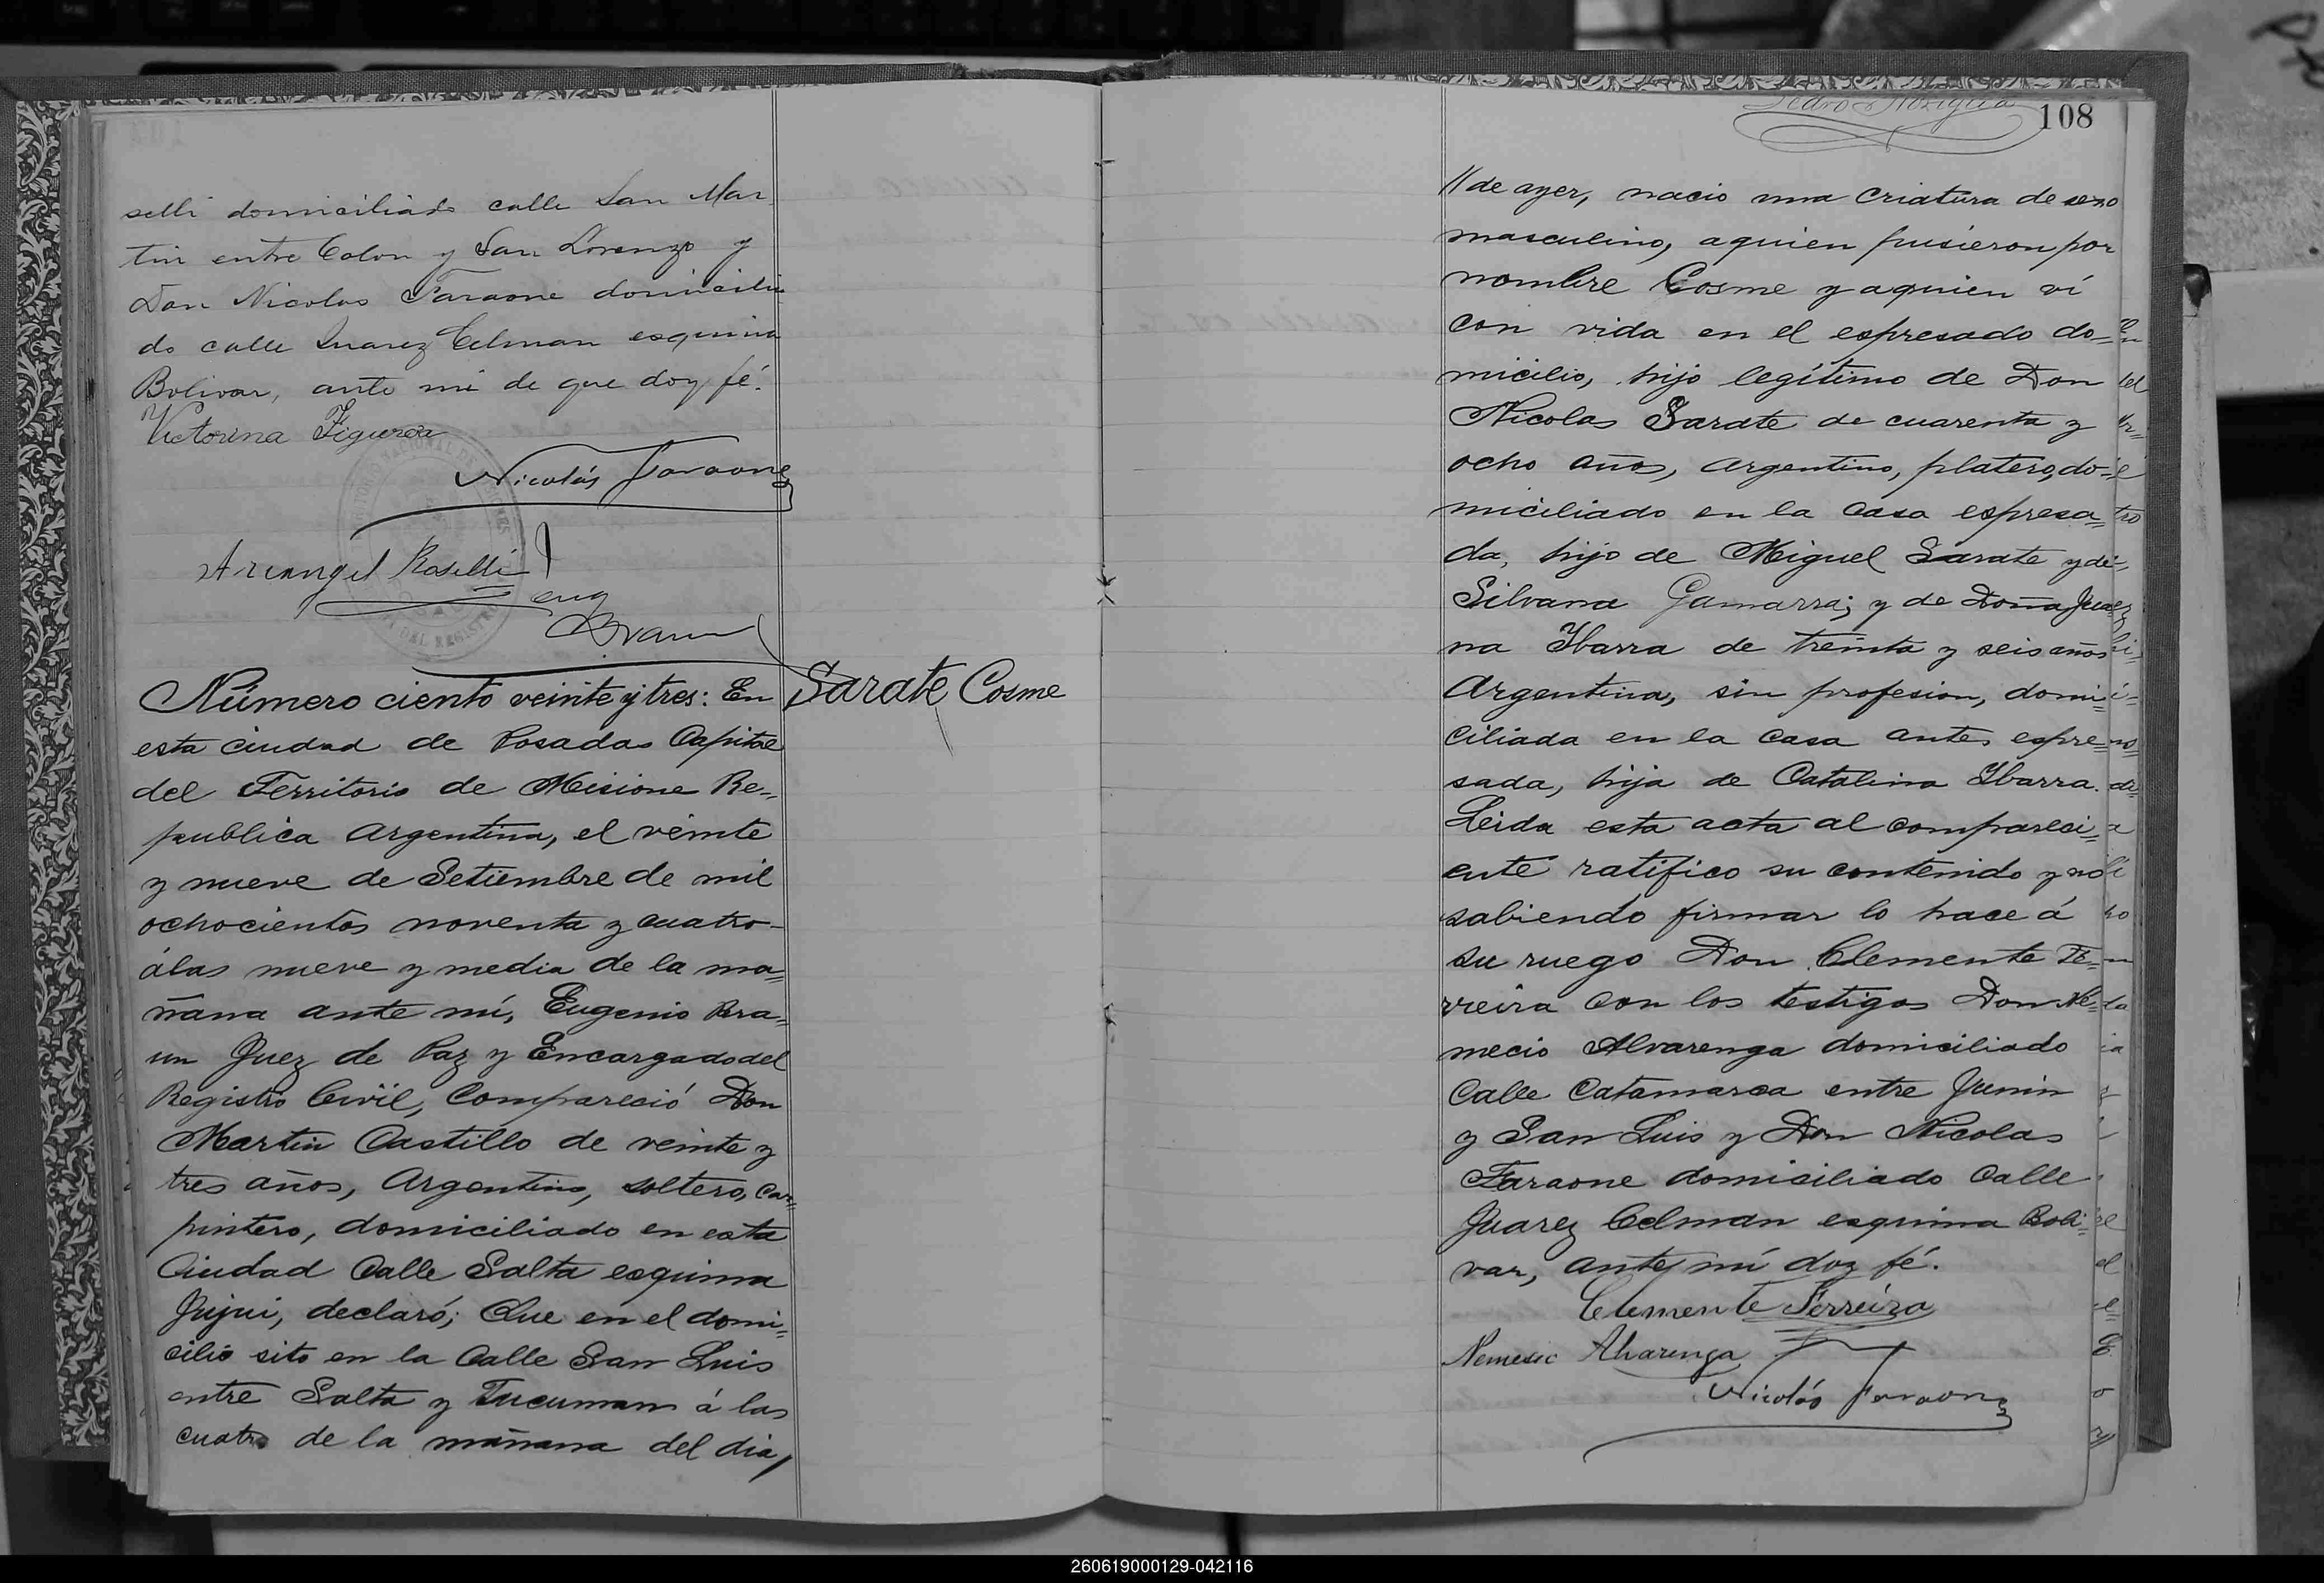 selli domiciliado calle San Mar
tin entre Colon y San Lorenzo y
Don Nicolas Faraone domicilia
do calle Juarez Celman esquina
Bolivar, ante mi de que doy fé.
Victorina Figueroa
Nicolás Faraone
Arcangel Roselli
Eug
Braun
Número ciento veinte y tres: En
esta ciudad de Posadas Capital
del Territorio de Misione Re=
publica Argentina, el veinte
y nueve de Setiembre de mil
ochocientos noventa y cuatro-
álas nueve y media de la ma=
ñana ante mí, Eugenio Bra=
un Juez de Paz y Encargado del
Registro Civil, Compareció Don
Martin Castillo de veinte y
tres años, Argentino, soltero, car=
pintero, domiciliado en esta
Ciudad Calle Salta esquina
Jujui, declaró; Que en el domi=
cilio sito en la Calle San Luis
entre Salta y Tucuman á las
cuatro de la mañana del dia/
Sarate Cosme
108
//de ayer, nacio una criatura de sexo
masculino, aquien pusieron por
nombre Cosme y aquien ví
con vida en el espresado do=
micilio, hijo legítimo de Don
Nicolas Sarate de cuarenta y
ocho años, Argentino, platero, do=
miciliado en la casa espresa=
da, hijo de Miguel Sarate y de
Silvana Gamarra; y de Doña Jua
na Ybarra de treinta y seis años
Argentina, sin profesion, domi=
ciliada en la casa antes espre=
sada, hija de Catalina Ybarra.
Leida esta acta al compareci=
ente ratifico su contenido y no
sabiendo firmar lo hace á
su ruego Don Clemente Fe=
rreira con los testigos Don Ne=
mecio Alvarenga domiciliado
Calle Catamarca entre Junin
y San Luis y Don Nicolas
Faraone domiciliado Calle
Juarez Celman esquina Boli=
var, ante mí doy fé.
Clemente Ferreira
Nemesio Alvarenga
Nicolás Faraone
260619000129-042116